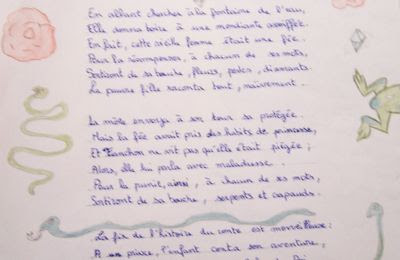 En allant chercher à la fontaine de l'eau,
Elle donna boire à une mendiante assoiffée.
En fait, cette vieille femme était une fée.
Pour la récompenser, à chacun de ses mots,
Sortiront de sa bouche, fleurs, perles, diamants.
La pauvre fille raconta tout, naïvement.
La mère envoya à son tour sa protégée.
Mais la fée avait pris des habits de princesse,
Et Fanchon ne vit pas qu'elle était piégée ;
Alors, elle lui parla avec maladresse.
Pour la punir, ainsi, à chacun de ses mots,
Sortiront de sa bouche, serpents et crapauds.
La fin de l'histoire du conte est merveilleuse :
A un prince, l'enfant conta son aventure,